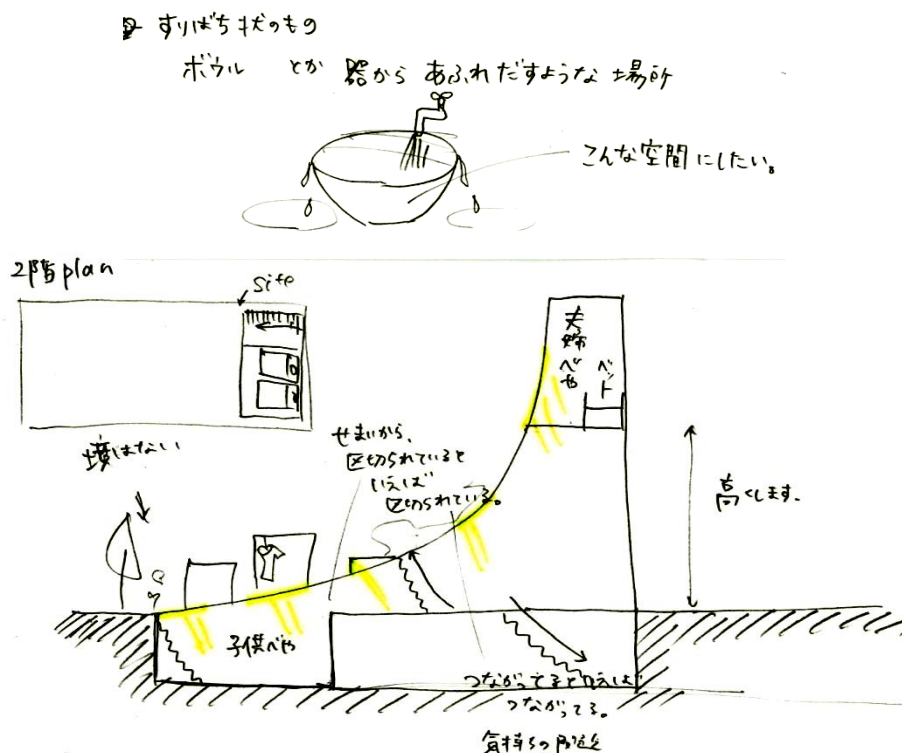 すりばち状のもの
ボウル とか 器から あふれだすような 場所
こんな空間にしたい。
2階plan
site
夫婦べや
ベット
境はない
せまいから、
区切られていると
いえば
区切られている。
高くします。
子供べや
つながってると言えば
つながってる。
気持ちの問題